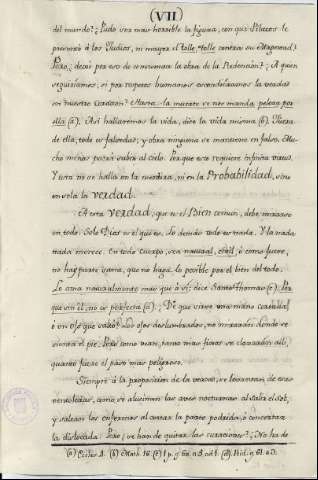 (VII)
del mundo? ¿Pudo ser mas horrible la figura, con que Pilatos le
presentó á los Judios, ni mayor el tolle tolle contra su Magestad?
Pero, decir por eso de consumar la obra de la Redención? ¿A quien
seguiriamos, si por respetos humanos escondieramos la verdad
en nuestro corazon? Hasta la muerte se nos manda pelear por
ella (a). Asi hallaremos la vida, dice la vida misma (b). Fuera
de ella, todo es falsedad; y obra ninguna se mantiene en falso. Mu-
cho menos podrá subir al Cielo. Por que este requiere infinita virtud.
Y esta no se halla en la mentira, ni en la Probabilidad, sino
en sola la verdad.
A esta verdad, que es el Bien comun, debe mirarse
en todo. Solo Dios es el que es. Lo demás todo es nada. Y la nada
nada merece. En todo Cuerpo, sea natural, civil, ó como fuere,
no hay parte sana, que no haga lo posible por el bien del todo.
Le ama naturalmente mas que á sí: dice Santo Thomas (c). Por
que sin él, no es perfecta (d). ¿De que sirve una mano cortada,
ó un ojo que saltó? Los ojos deslumbrados, no miran donde se
sienta el pie. Pero como van, tanto mas fixos se clavarán allí,
quanto fuere el paso mas peligroso.
Siempre á la proposicion de la verdad, se levantan de esos
remolinos, como se alucinan las aves nocturnas al salir el sol;
y saltan los enfermos al cortar la parte podrida, ó concertar
la dislocada. Pero, se han de quitar las curaciones? No ha de
(a) Eccles. 4. (b) Math. 16. (c) 1 p. q. 60. a. 5. ad 1. (d) Ibid. q. 61. a. 3.